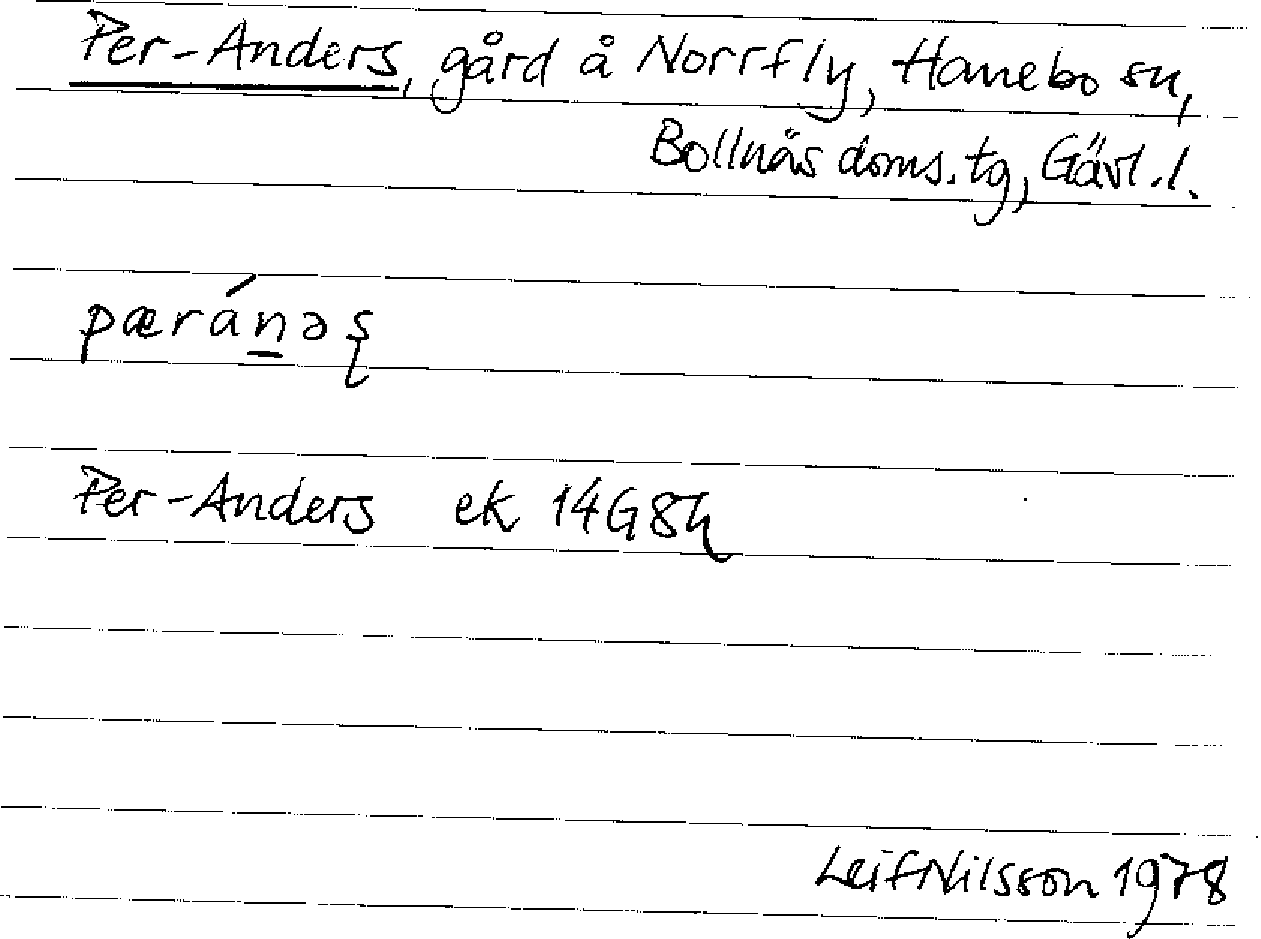 Per-Anders, gård å Norrfly, Hanebo sn,
Bollnäs doms.tg, Gävl.l.
pæránəʂ
Per-Anders ek 14G8h
Leif Nilsson 1978